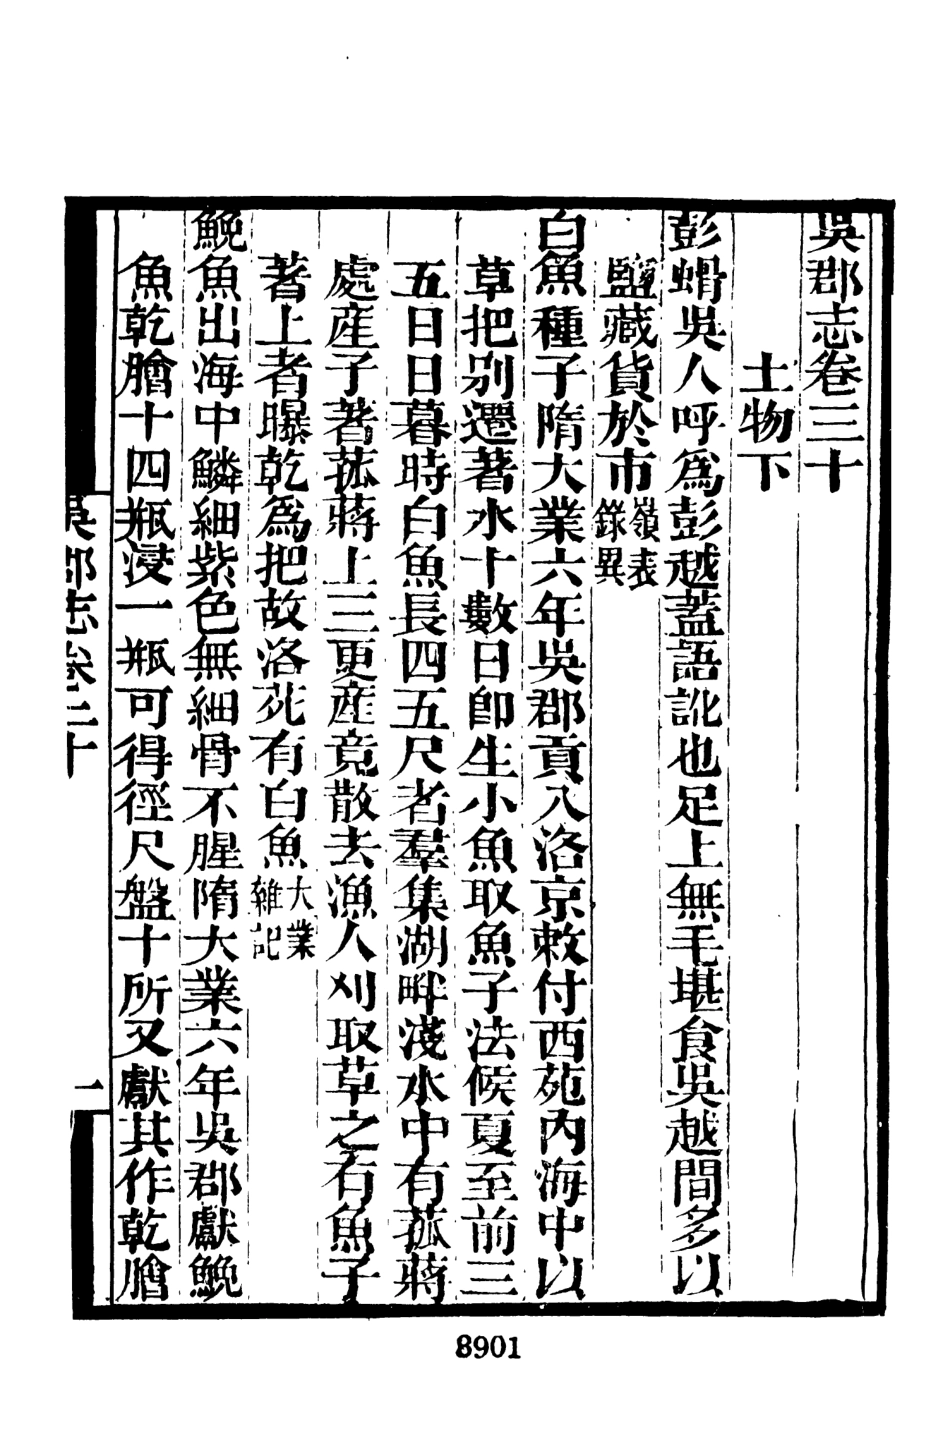 吳郡志卷三十
土物下
彭蜎吳人呼爲彭越蓋語訛也足上無毛堪食吳越間多以
鹽藏貨於市嶺表錄異
白魚種子隋大業六年吳郡貢入洛京敕付西苑內海中以
草把別遷著水十數日卽生小魚取魚子法候夏至前三
五日日暮時白魚長四五尺者羣集湖畔淺水中有菰蔣
處產子著菰蔣上三更產竟散去漁人刈取草之有魚子
著上者曝乾爲把故洛苑有白魚大業雜記
鮸魚出海中鱗細紫色無細骨不腥隋大業六年吳郡獻鮸
魚乾膾十四瓶浸一瓶可得徑尺盤十所又獻其作乾膾
吳郡志卷三十
一
8901